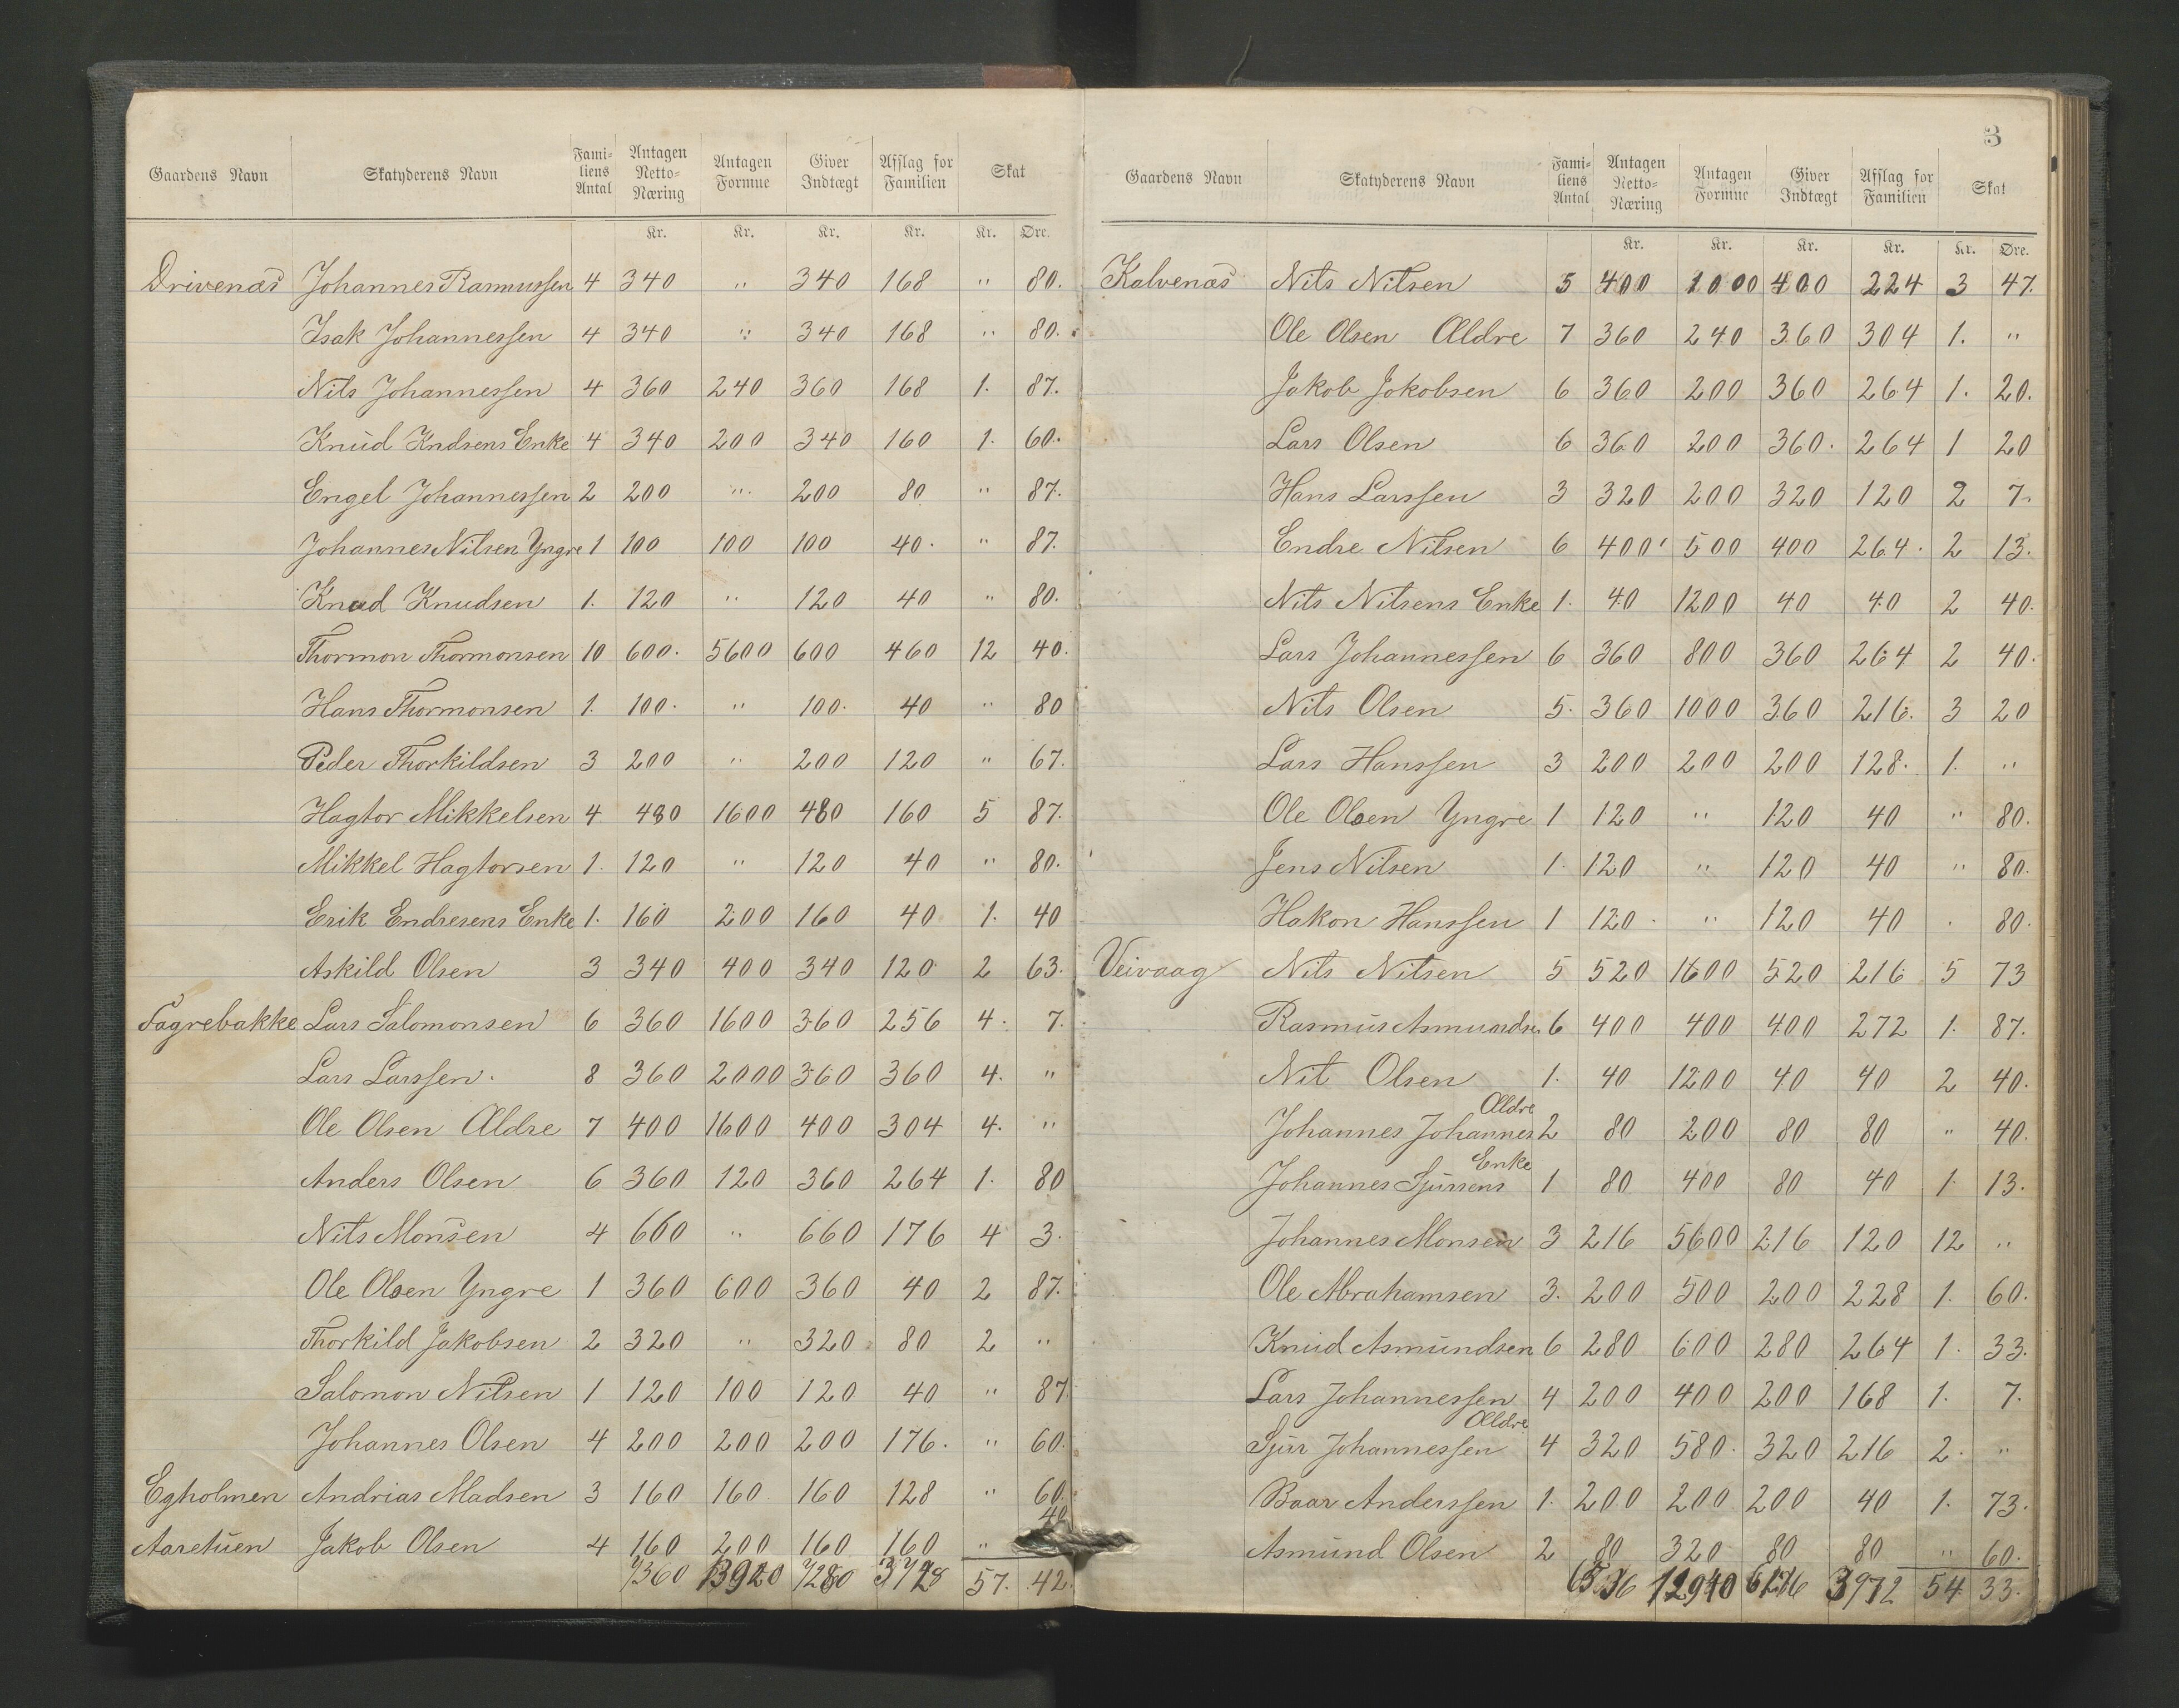 Gaardens Navn Skatyderens Navn Familiens Antal Antagen Netto-Næring Antagen Formue Giver Indtægt Afslag for Familien Skat
Kr. Kr. Kr. Kr. Kr. Øre.
Drivenæs Johannes Rasmussen 4 340 " 340 168 " 80.
Isak Johannessen 4 340 " 340 168 " 80.
Nils Johannessen 4 360 240 360 168 1. 87.
Knud Kndsens Enke 4 340 200 340 160 1. 60.
Engel Johannessen 2 200 " 200 80 " 87.
Johannes Nilsen Yngre 1 100 100 100 40. " 87.
Knud Knudsen 1. 120 " 120 40 " 80.
Thormon Thormonsen 10 600. 5600 600 460 12 40.
Hans Thormonsen 1. 100. " 100. 40 " 80
Peder Thorkildsen 3 200 " 200 120 " 67.
Hagtor Mikkelsen 4 480 1600 480 160 5 87.
Mikkel Hagtorsen 1. 120 " 120 40 " 80.
Erik Endresens Enke 1. 160 200 160 40 1. 40
Askild Olsen 3 340 400 340 120 2 63.
Fagrebakke Lars Salomonsen 6 360 1600 360 256 4. 7.
Lars Larssen. 8 360 2000 360 360 4. "
Ole Olsen Ældre 7 400 1600 400 304 4. "
Anders Olsen 6 360 120 360 264 1. 80
Nils Monsen 4 660 " 660 176 4 3.
Ole Olsen Yngre 1 360 600 360 40 2 87.
Thorkild Jakobsen 2 320 " 320 80 2 "
Salomon Nilsen 1 120 100 120 40 " 87.
Johannes Olsen 4 200 200 200 176. " 60.
Egholmen Andrias Madsen 3 160 160 160 128 " 60.
Aaretuen Jakob Olsen 4 160 200 160 160 " 40
7360 13920 7280 3728 57. 42.
3
Gaardens Navn Skatyderens Navn Familiens Antal Antagen Netto-Næring Antagen Formue Giver Indtægt Afslag for Familien Skat
Kr. Kr. Kr. Kr. Kr. Øre.
Kalvenæs Nils Nilsen 5 400 1000 400 224 3 47.
Ole Olsen Ældre 7 360 240 360 304 1. "
Jakob Jakobsen 6 360 200 360 264 1. 20.
Lars Olsen 6 360 200 360. 264 1 20
Hans Larssen 3 320 200 320 120 2 7.
Endre Nilsen 6 400 500 400 264. 2 13.
Nils Nilsens Enke 1. 40 1200 40 40 2 40.
Lars Johannessen 6 360 800 360 264 2 40.
Nils Olsen 5. 360 1000 360 216. 3 20
Lars Hanssen 3 200 200 200 128. 1. "
Ole Olsen Yngre 1 120 " 120 40 " 80.
Jens Nilsen 1. 120 " 120 40 " 80.
Hakon Hanssen 1 120. " 120 40 . 80.
Veivaag Nils Nilsen 5 520 1600 520 216 5 73
Rasmus Asmundsn 6 400 400 400 272 1. 87.
Nil Olsen 1. 40 1200 40 40 2 40.
Johannes Johannes Ældre 2 80 200 80 80 " 40.
Johannes Sjursens Enke 1 80 400 80 40 1. 13.
Johannes Monsen 3 216 5600 216 120 12 "
Ole Abrahamsen 3. 200 500 200 228 1. 60.
Knud Asmundsen 6 280 600 280 264 1. 33.
Lars Johannessen 4 200 400 200 168 1. 7.
Sjur Johannessen Ældre 4 320 580. 320 216 2. "
Baar Anderssen 1. 200 200 200 40 1. 73.
Asmund Olsen 2 80 320 80 80 " 60.
12940 3972 54 33.